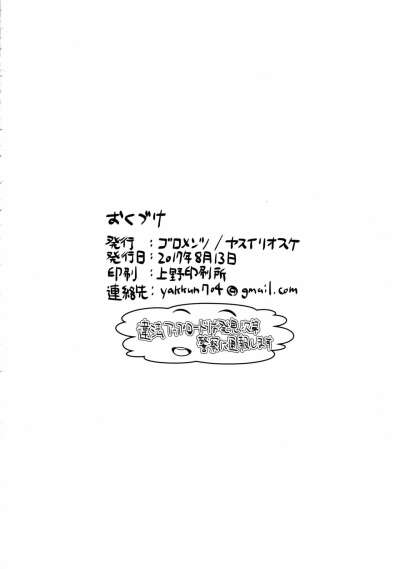 おくづけ
発行 : ゴロメンツ / ヤスイリオスケ
発行日 : 2017年8月13日
印刷 : 上野印刷所
連絡先 : yakkun704@gmail.com
違法アップロードは発見次第
警察に通報します